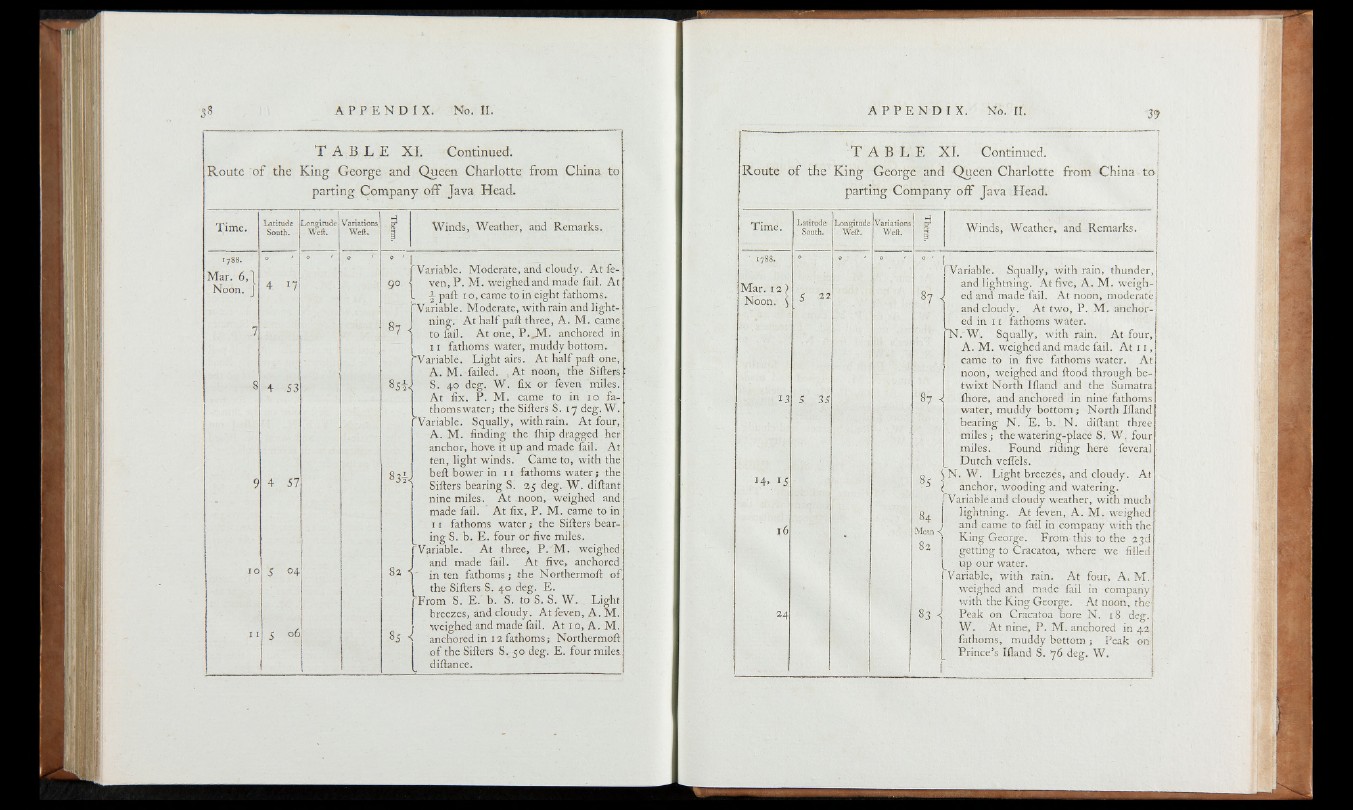 38 APPENDIX. No. II.
TABLE XI. Continued.
Route of the King George and Queen Charlotte from China to
parting Company off Java Head.
Time. Latitude South. Longitude West. Variations West. Therm. Winds, Weather, and Remarks.
1788. ° ' ° ' ° ' ° '
Mar. 6, Noon. 4 17 90 Variable. Moderate, and cloudy. At ſe-
ven, P. M. weighed and made ſail. At
½ paſt 10, came to in eight fathoms.
7 87 Variable. Moderate, with rain and light-
ning. At half paſt three, A. M. came
to ſail. At one, P. M. anchored in
11 fathoms water, muddy bottom.
8 4 53 85½ Variable. Light airs. At half paſt one,
A. M. ſailed. At noon, the Siſters
S. 40 deg. W. ſix or ſeven miles.
At ſix, P. M. came to in 10 fa-
thoms water; the Siſters S. 17 deg. W.
9 4 57 83½ Variable. Squally, with rain. At four,
A. M. finding the ſhip dragged her
anchor, hove it up and made ſail. At
ten, light winds. Came to, with the
beſt bower in 11 fathoms water; the
Siſters bearing S. 25 deg. W. diſtant
nine miles. At noon, weighed and
made ſail. At ſix, P. M. came to in
11 fathoms water; the Siſters bear-
ing S. b. E. four or five miles.
10 5 04 82 Variable. At three, P. M. weighed
and made ſail. At five, anchored
in ten fathoms; the Northermoſt of
the Siſters S. 40 deg. E.
11 5 06 85 From S. E. b. S. to S. S. W. Light
breezes, and cloudy. At ſeven, A. M.
weighed and made ſail. At 10, A. M.
anchored in 12 fathoms; Northermoſt
of the Siſters S. 50 deg. E. four miles
diſtance.
APPENDIX. No. II. 39
TABLE XI. Continued.
Route of the King George and Queen Charlotte from China to
parting Company off Java Head.
Time. Latitude South. Longitude West. Variations West. Therm. Winds, Weather, and Remarks.
1788. ° ' ° ' ° ' ° '
Mar. 12 Noon. 5 22 87 Variable. Squally, with rain, thunder,
and lightning. At five, A. M. weigh-
ed and made ſail. At noon, moderate
and cloudy. At two, P. M. anchor-
ed in 11 fathoms water.
13 5 35 87 N. W. Squally, with rain. At four,
A. M. weighed and made ſail. At 11,
came to in five fathoms water. At
noon, weighed and ſtood through be-
twixt North Iſland and the Sumatra
ſhore, and anchored in nine fathoms
water, muddy bottom; North Iſland
bearing N. E. b. N. diſtant three
miles; the watering-place S. W. four
miles. Found riding here ſeveral
Dutch veſſels.
14, 15 85 N. W. Light breezes, and cloudy. At
anchor, wooding and watering.
16 84 Mean 82 Variable and cloudy weather, with much
lightning. At ſeven, A. M. weighed
and came to ſail in company with the
King George. From this to the 23d
getting to Cracatoa, where we filled
up our water.
24 83 Variable, with rain. At four, A. M.
weighed and made ſail in company
with the King George. At noon, the
Peak on Cracatoa bore N. 18 deg.
W. At nine, P. M. anchored in 42
fathoms, muddy bottom; Peak on
Prince's Iſland S. 76 deg. W.